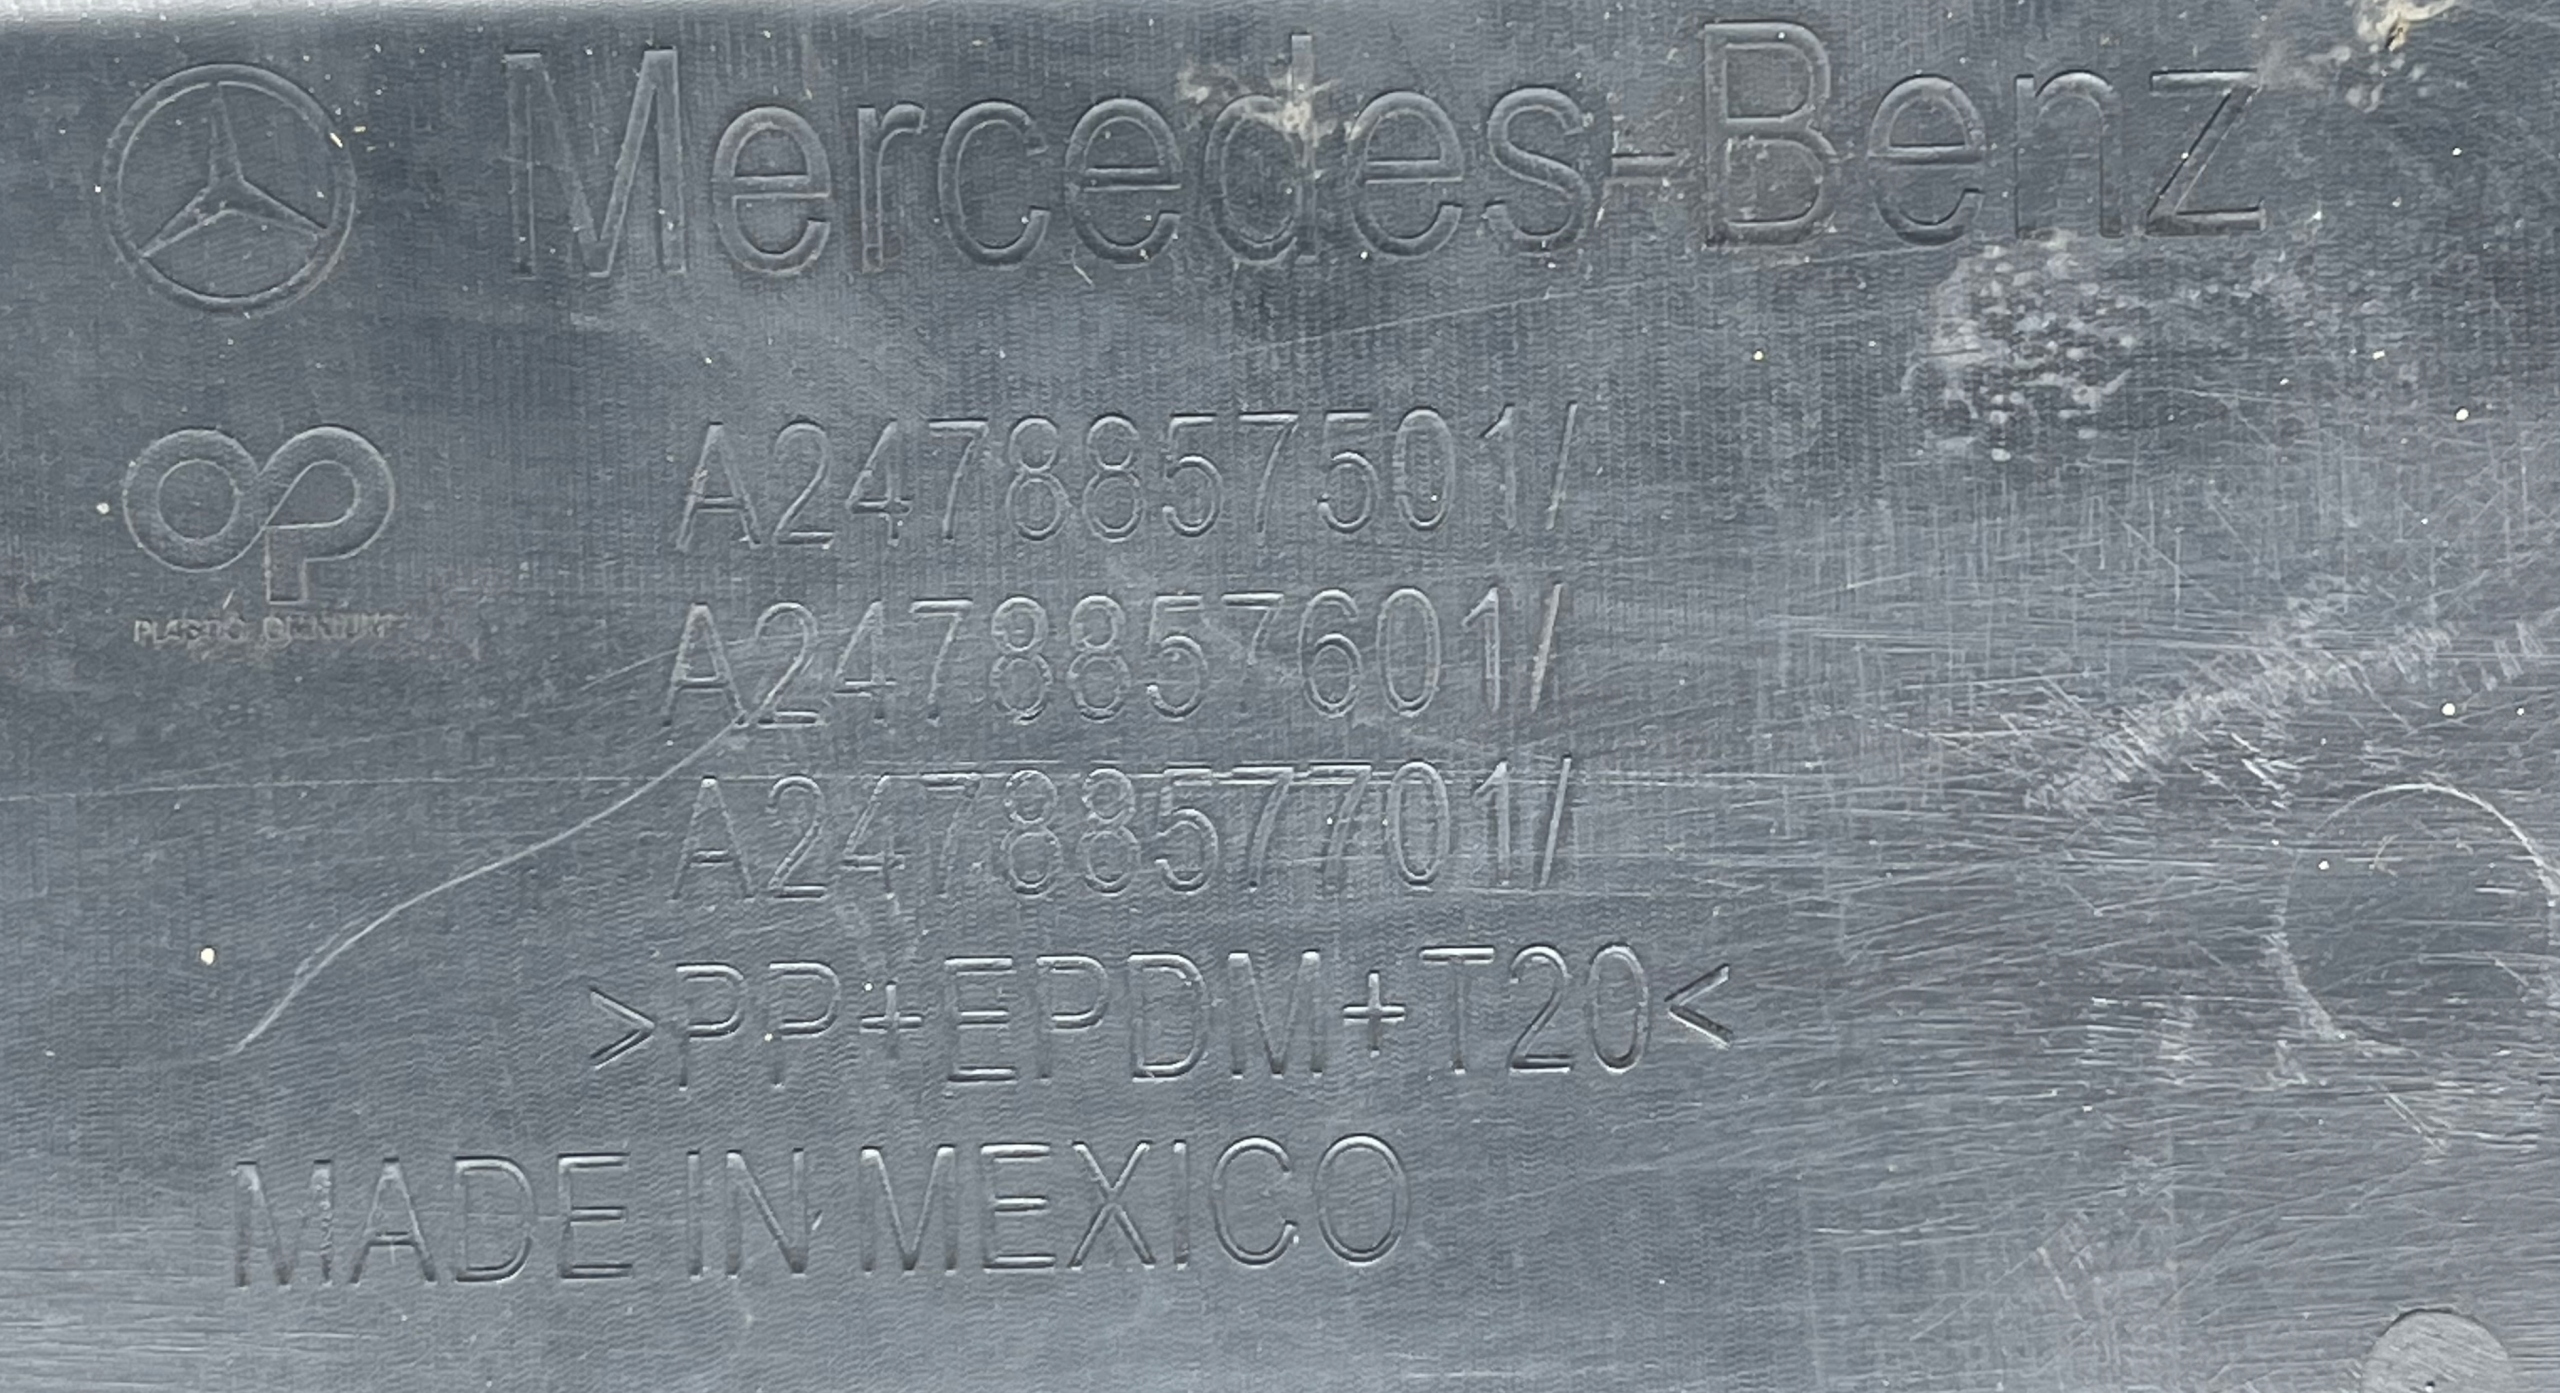 Mercedes-Benz
A2478857501/
PLASTIC OMNIUM
A2478857601/
A2478857701/
>PP+EPDM+T20<
MADE IN MEXICO